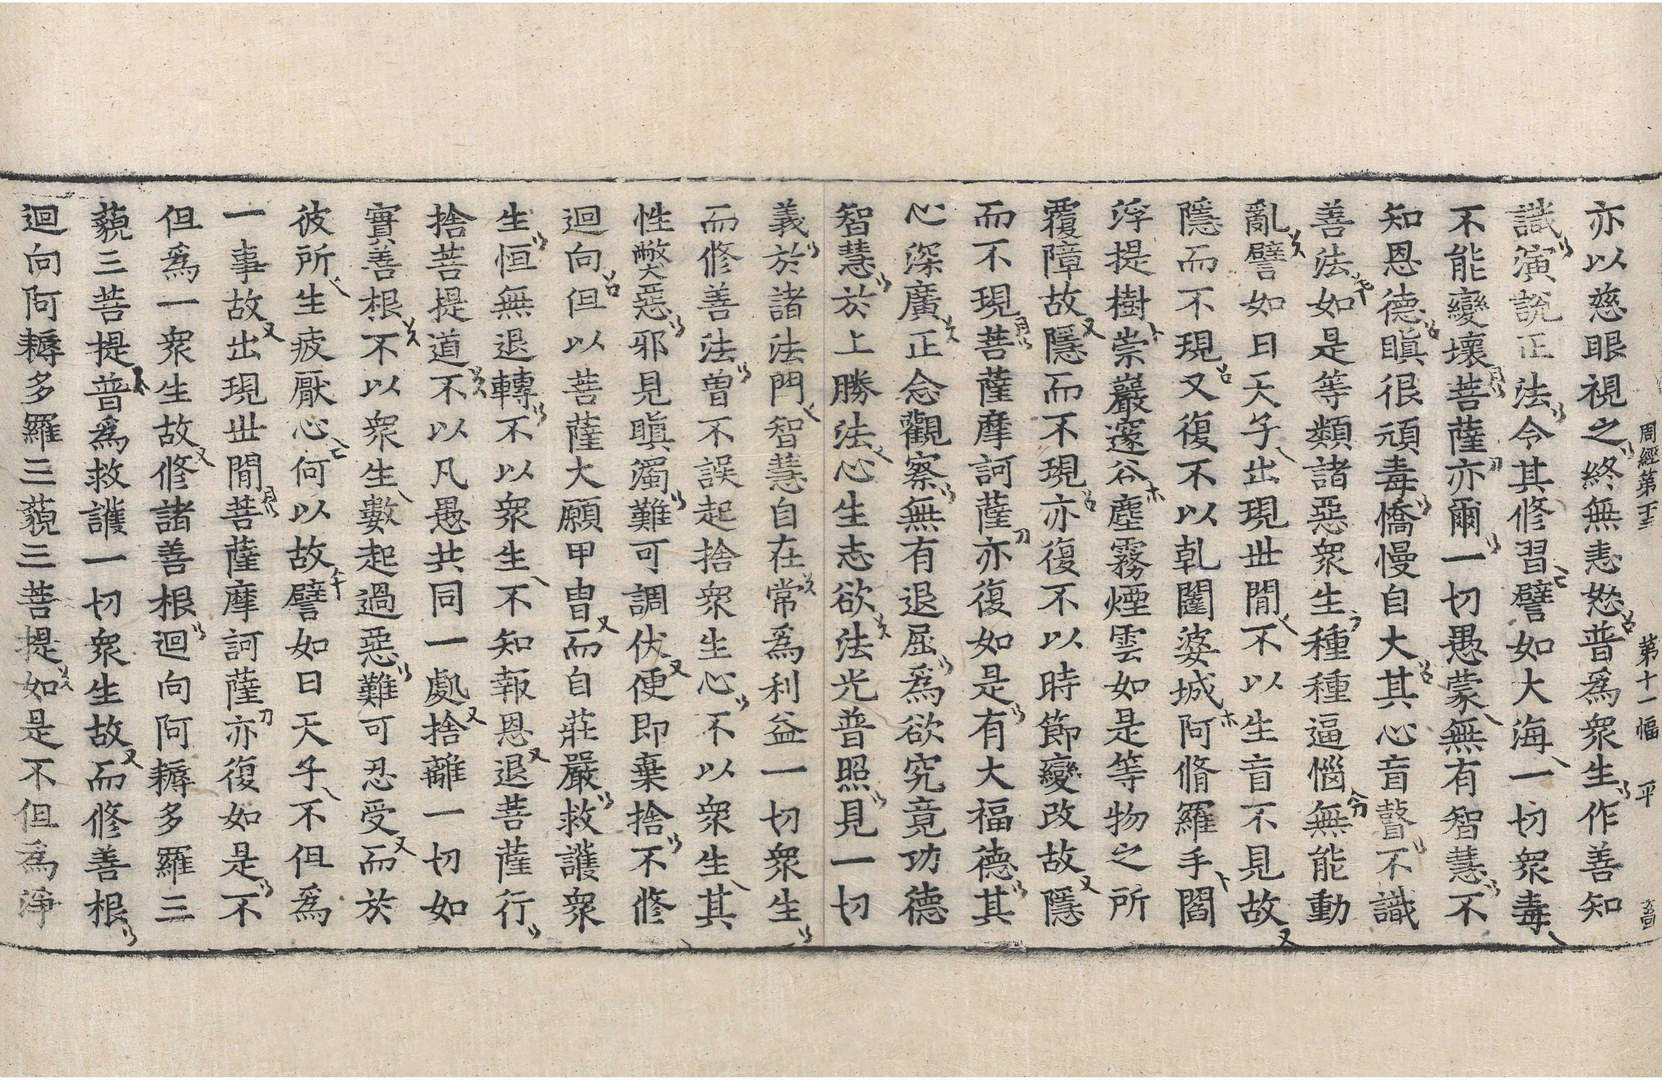 周經第二十三 第十一幅 平
亦以慈眼視之終無恚怒普爲衆生作善知
識演說正法令其修習譬如大海一切衆毒
不能變壞菩薩亦爾一切愚蒙無有智慧不
知恩德瞋很頑毒憍慢自大其心盲瞽不識
善法如是等類諸惡衆生種種逼惱無能動
亂譬如日天子出現世間不以生盲不見故
隱而不現又復不以乹闥婆城阿脩羅手閻
浮提樹崇巖邃谷塵霧煙雲如是等物之所
覆障故隱而不現亦復不以時節變改故隱
而不現菩薩摩訶薩亦復如是有大福德其
心深廣正念觀察無有退屈爲欲究竟功德
智慧於上勝法心生志欲法光普照見一切
義於諸法門智慧自在常爲利益一切衆生
而修善法曾不誤起捨衆生心不以衆生其
性獘惡邪見瞋濁難可調伏便即棄捨不修
迴向但以菩薩大願甲冑而自莊嚴救護衆
生恒無退轉不以衆生不知報恩退菩薩行
捨菩提道不以凡愚共同一處捨離一切如
實善根不以衆生數起過惡難可忍受而於
彼所生疲厭心何以故譬如日天子不但爲
一事故出現世間菩薩摩訶薩亦復如是不
但爲一衆生故修諸善根迴向阿耨多羅三
藐三菩提普爲救護一切衆生故而修善根
迴向阿耨多羅三藐三菩提如是不但爲淨